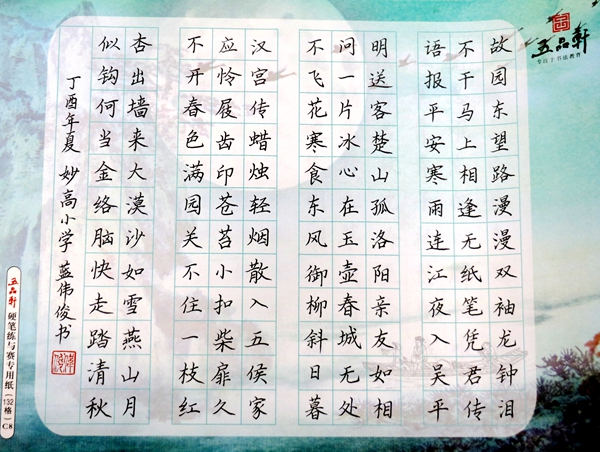 五品軒
专注于书法教育
故园东望路漫漫双袖龙钟泪
不干马上相逢无纸笔凭君传
语报平安寒雨连江夜入吴平
明送客楚山孤洛阳亲友如相
问一片冰心在玉壶春城无处
不飞花寒食东风御柳斜日暮
汉宫传蜡烛轻烟散入五侯家
应怜屐齿印苍苔小扣柴扉久
不开春色满园关不住一枝红
杏出墙来大漠沙如雪燕山月
似钩何当金络脑快走踏清秋
丁酉年夏 妙高小学 蓝伟俊书
五品軒 硬笔练与赛专用纸（132格）C8